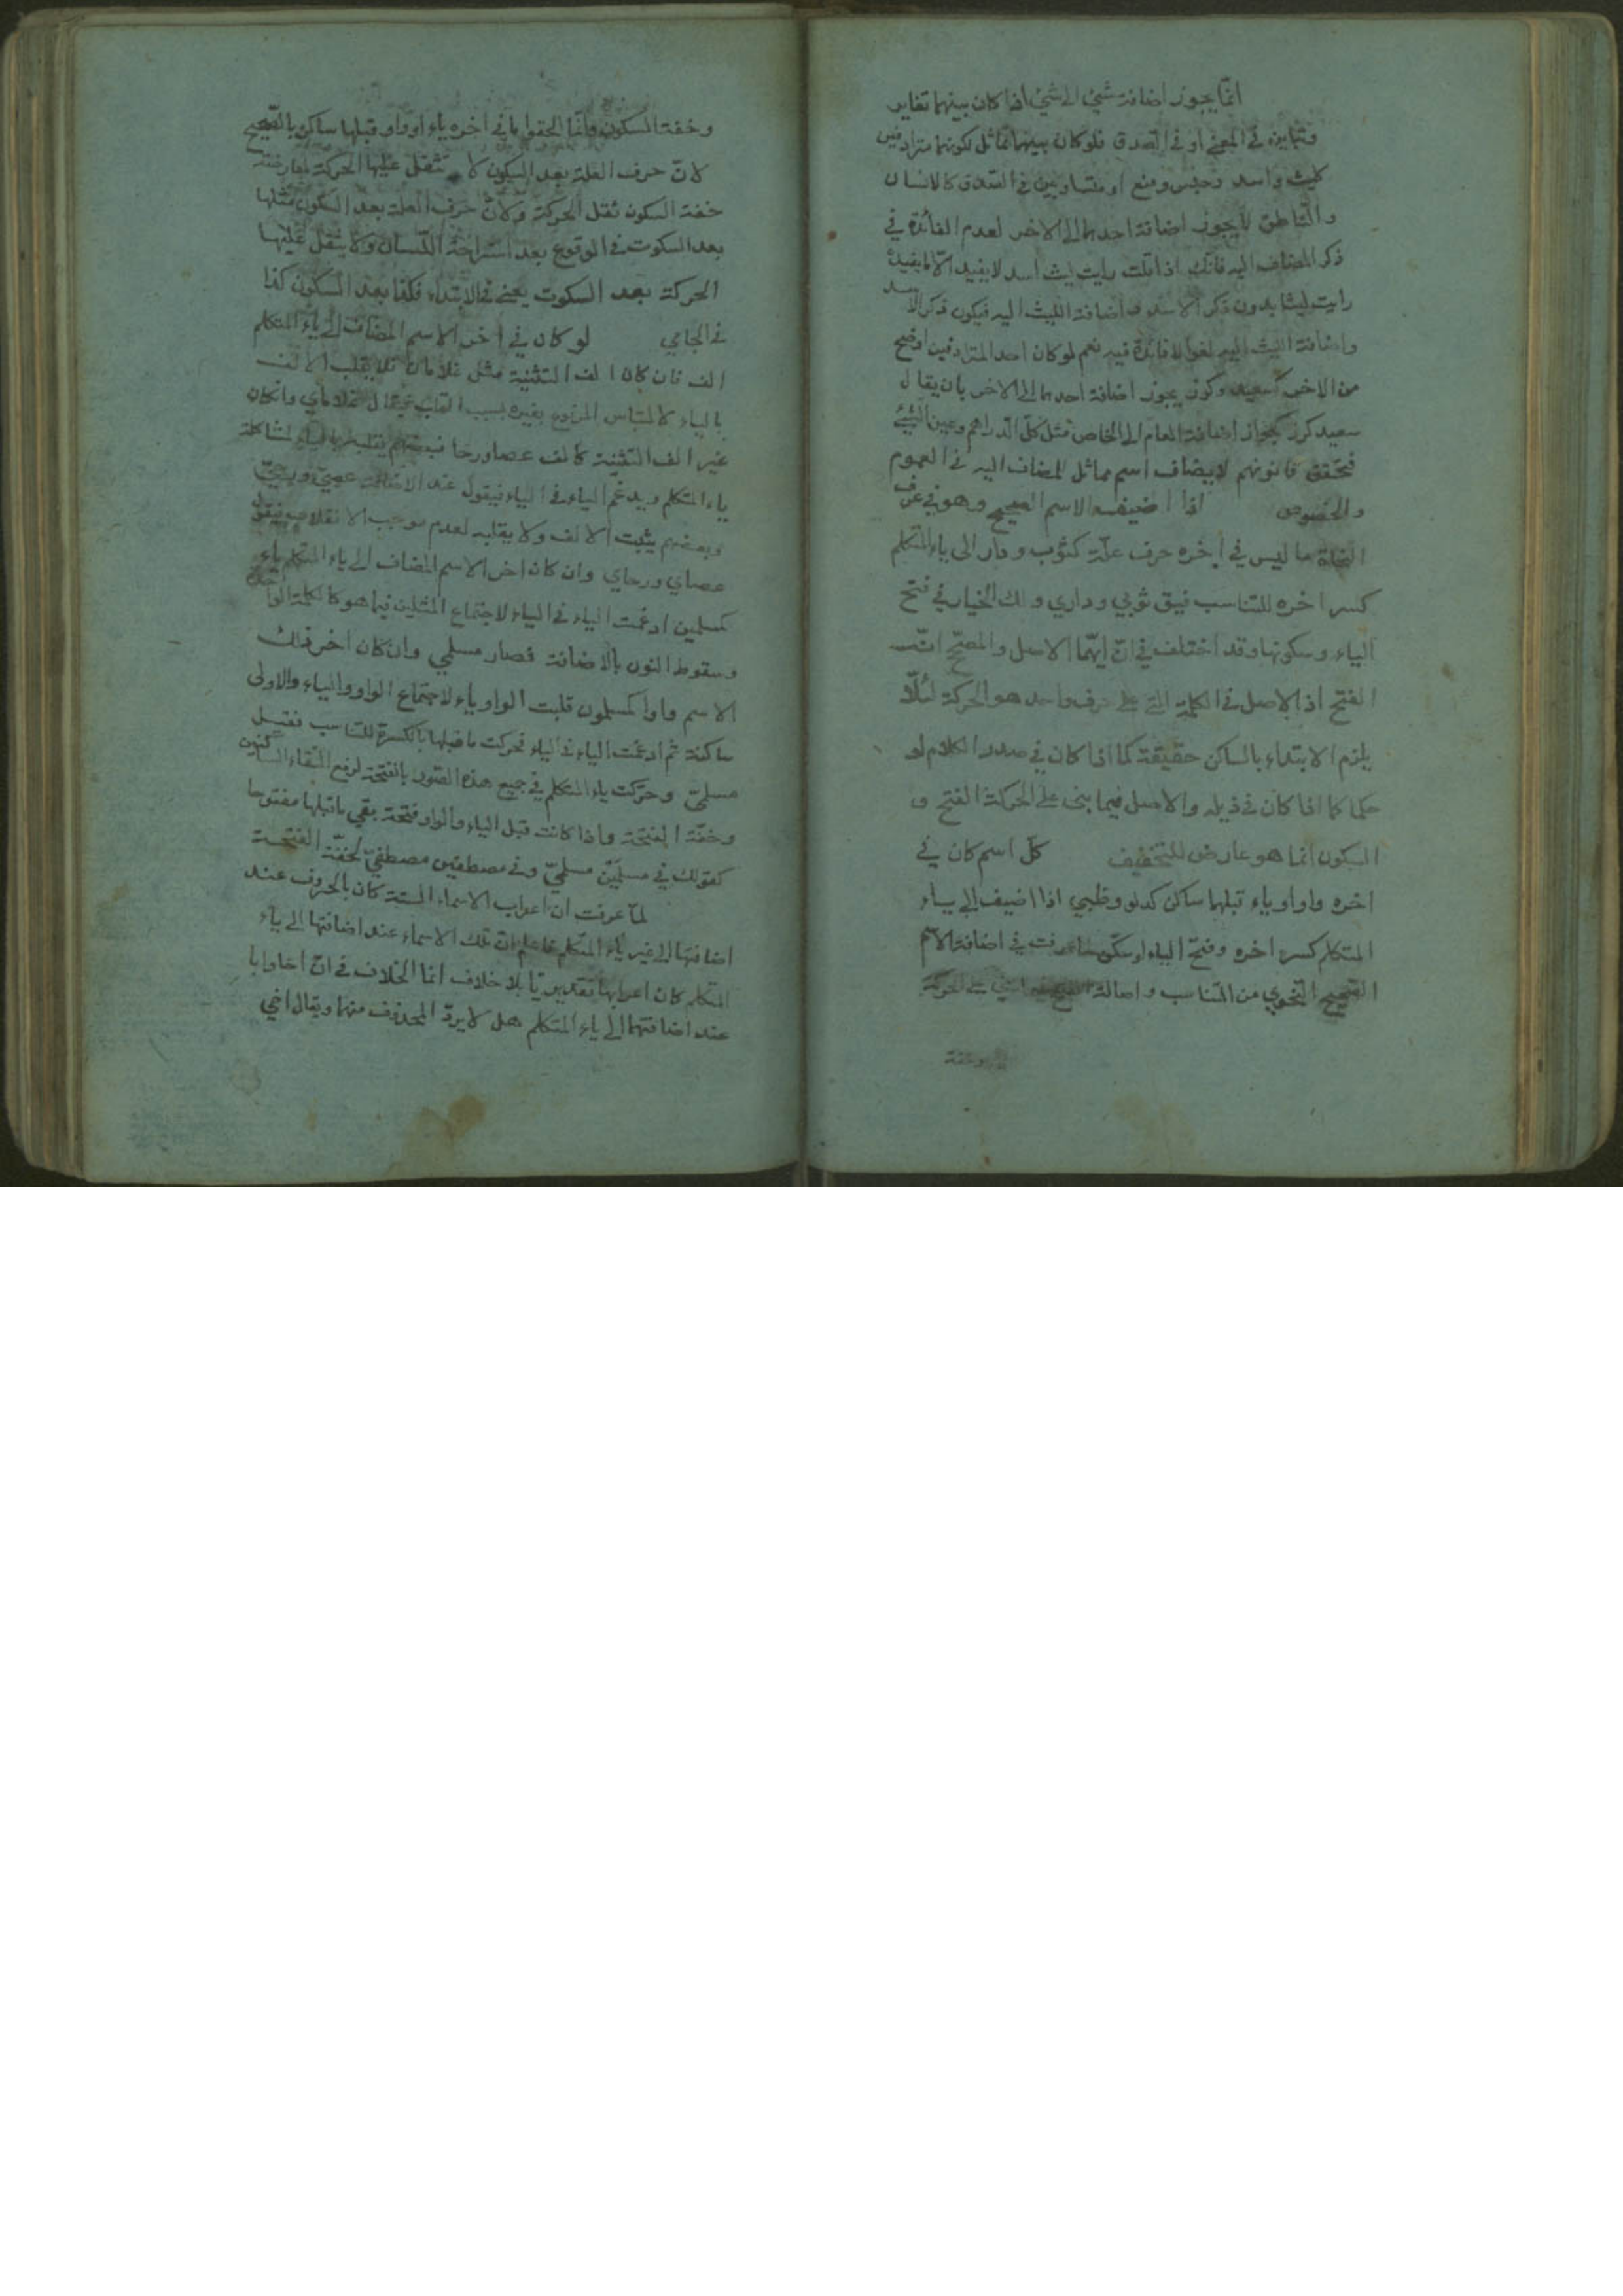 انّما يجوز اضافة شئ الى شئ اذا كان بينهما تغاير
وتباين في المعنى او في الصدق فلو كان بينهما تماثل لكونهما مترادفين
كليث واسد وحبس ومنع او متساويين في الصدق كالانسان
والناطق لا يجوز اضافة احدهما الى الاخر لعدم الفائدة في
ذكر المضاف اليه فانك اذا قلت رايت ليث اسد لا يفيد الّا ما يفيده
رايت ليثا بدون ذكر الاسد و اضافة الليث اليه فيكون ذكر الاسد
واضافة الليث اليه لغوا لا فائدة فيه نعم لو كان احد المترادفين اوضح
من الاخر كسعيد وكرز يجوز اضافة احدهما الى الاخر بان يقال
سعيد كرز كجواز اضافة العام الى الخاص مثل كلّ الدراهم وعين الشئ
فتحقق قانونهم لا يضاف اسم مماثل للمضاف اليه في العموم
والخصوص اذا اضيف الاسم الصحيح وهو في عرف
النحاة ما ليس في اخره حرف علّة كثوب ودار الى ياء المتكلم
كسر اخره للتناسب فيق ثوبي وداري ولك الخيار في فتح
الياء وسكونها وقد اختلف في انّ ايّهما الاصل والمصحّ انّه
الفتح اذ الاصل في الكلمة التي على حرف واحد هو الحركة لئلّا
يلزم الابتداء بالساكن حقيقة كما اذا كان في صدر الكلام او
حكما كما اذا كان في ذيله والاصل فيما بنى على الحركة الفتح و
السكون انما هو عارض للتخفيف كلّ اسم كان في
اخره واو او ياء قبلها ساكن كدلو وظبي اذا اضيف الى ياء
المتكلم كسر اخره وفتح الياء او سكن لما عرفت في اضافة الاسم
الصحيح النحوي من التناسب واصالة الفتح فيما بنى على الحركة
وخفة
وخفة السكون وانّما الحقوا ما في اخره ياء او واو قبلها ساكن بالصحيح
لانّ حرف العلة بعد السكون لا تثقل عليها الحركة لمعارضة
خفة السكون ثقل الحركة ولانّ حرف العلة بعد السكون مثلها
بعد السكوت في الوقوع بعد استراحة اللسان ولا يثقل عليها
الحركة بعد السكوت يعني في الابتداء فكذا بعد السكون كذا
في الجامي لو كان في اخر الاسم المضاف الى ياء المتكلم
الف فان كان الف التثنية مثل غلامان فلا يقلب الالف
بالياء لالتباس المرفوع بغيره بسبب القلب فيقال غلاماي وان كان
غير الف التثنية كالف عصا ورحا فبعضهم يقلبها بالياء لمشاكلة
ياء المتكلم ويدغم الياء في الياء فيقول عند الاضافة عصيّ ورحيّ
وبعضهم يثبت الالف ولا يقلبه لعدم موجب الانقلاب فيقول
عصاي ورحاي وان كان اخر الاسم المضاف الى ياء المتكلم ياء
كمسلمين ادغمت الياء في الياء لاجتماع المثلين فيما هو كالكلمة الواحدة
وسقوط النون بالاضافة فصار مسلمي وان كان اخر ذلك
الاسم واوا كمسلمون قلبت الواو ياء لاجتماع الواو والياء والاولى
ساكنة ثم ادغمت الياء في الياء تحركت ما قبلها بالكسرة للتناسب فقيل
مسلميّ وحرّكت ياء المتكلم في جميع هذه الصور بالفتحة لرفع التقاء الساكنين
وخفّة الفتحة واذا كانت قبل الياء والواو فتحة بقي ما قبلها مفتوحا
كقولك في مسلمَيْن مسلميّ وفي مصطفين مصطفيّ لخفّة الفتحة
لمّا عرفت ان اعراب الاسماء الستة كان بالحروف عند
اضافتها الى غير ياء المتكلم فاعلم انّ تلك الاسماء عند اضافتها الى ياء
المتكلم كان اعرابها تقديريّا بلا خلاف انما الخلاف في انّ اخا وابا
عند اضافتهما الى ياء المتكلم هل لا يردّ المحذوف منهما ويقال اخي